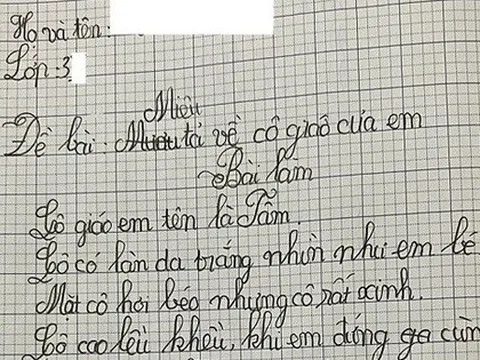 Họ và tên:
Lớp: 3
Miêu
Đề bài: tả về cô giáo của em
Bài làm
Cô giáo em tên là Tâm.
Cô có làn da trắng nhìn như em bé
Mặt cô hơi béo nhưng cô rất xinh.
Cô cao lêu khêu, khi em đứng cùn